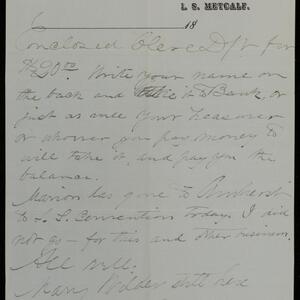 L. S. METCALF.
18
Enclosed Cleve Dft for
$90.00. Write your name on
the back and take it to Bank, or
just as well your Treasurer
or whoever you pay money to
will take it, and pay you the
balance.
Marion has gone to Amherst
to S. S. Convention today. I did
not go - for this and other reasons.
All well.
Mary Wilder still here